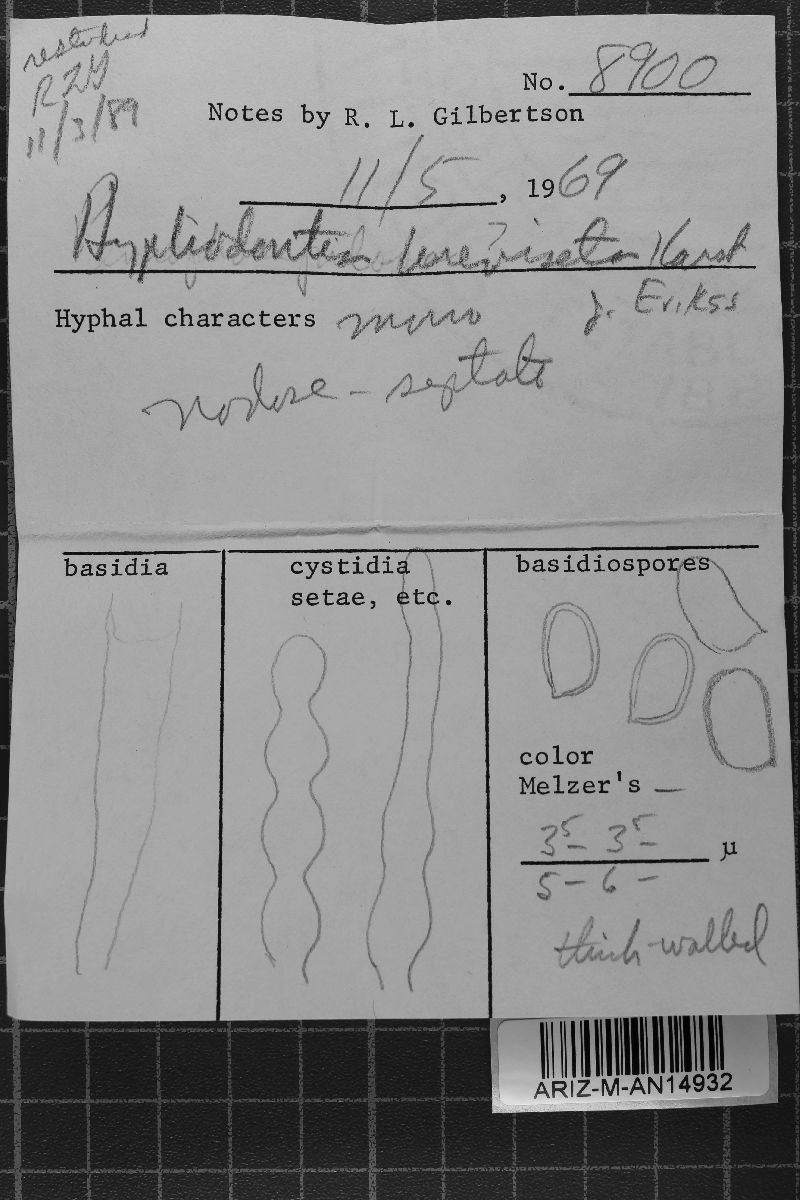 restudied
RLG
11/3/89
No. 8900
Notes by R. L. Gilbertson
11/5, 1969
Hyphodontia breviseta Karst
J. Erikss
Hyphal characters mono
nodose-septate
basidia
cystidia
setae, etc.
basidiospores
color
Melzer's —
3⁵– 3⁵– µ
5 – 6 –
thick-walled
ARIZ-M-AN14932